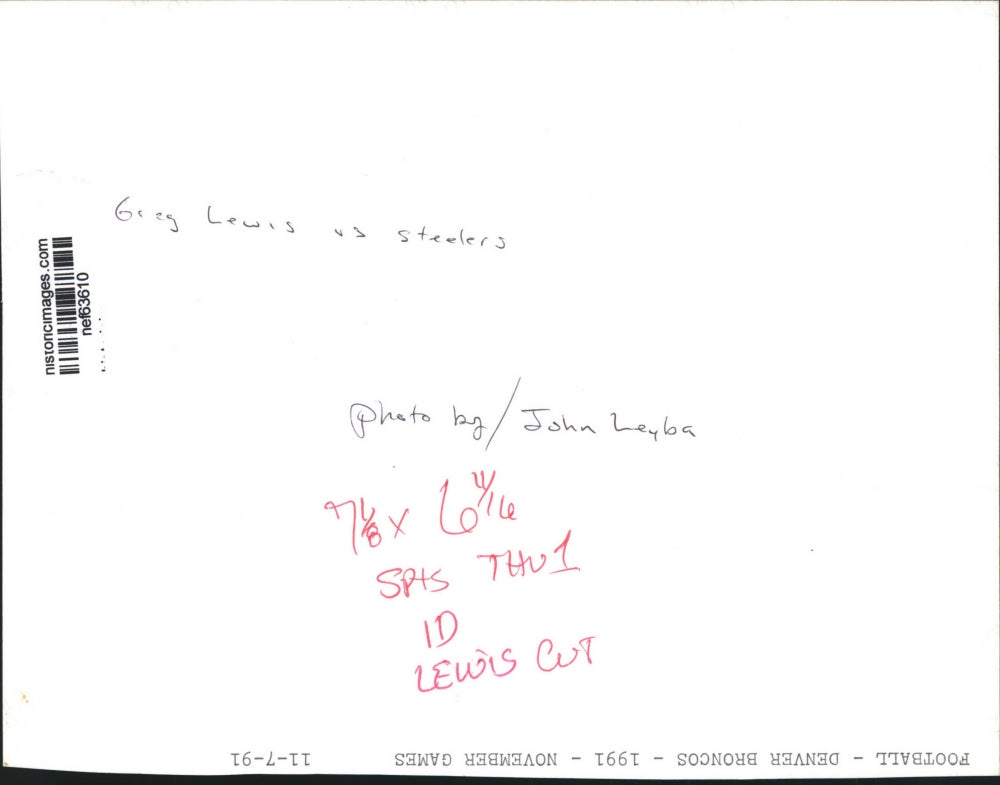 Greg Lewis vs steelers
historicimages.com
nef63610
photo by / John Leyba
7 1/8 X 6 11/16
SPTS THU 1
ID
LEWIS CUT
FOOTBALL - DENVER BRONCOS - 1991 - NOVEMBER GAMES 11-7-91